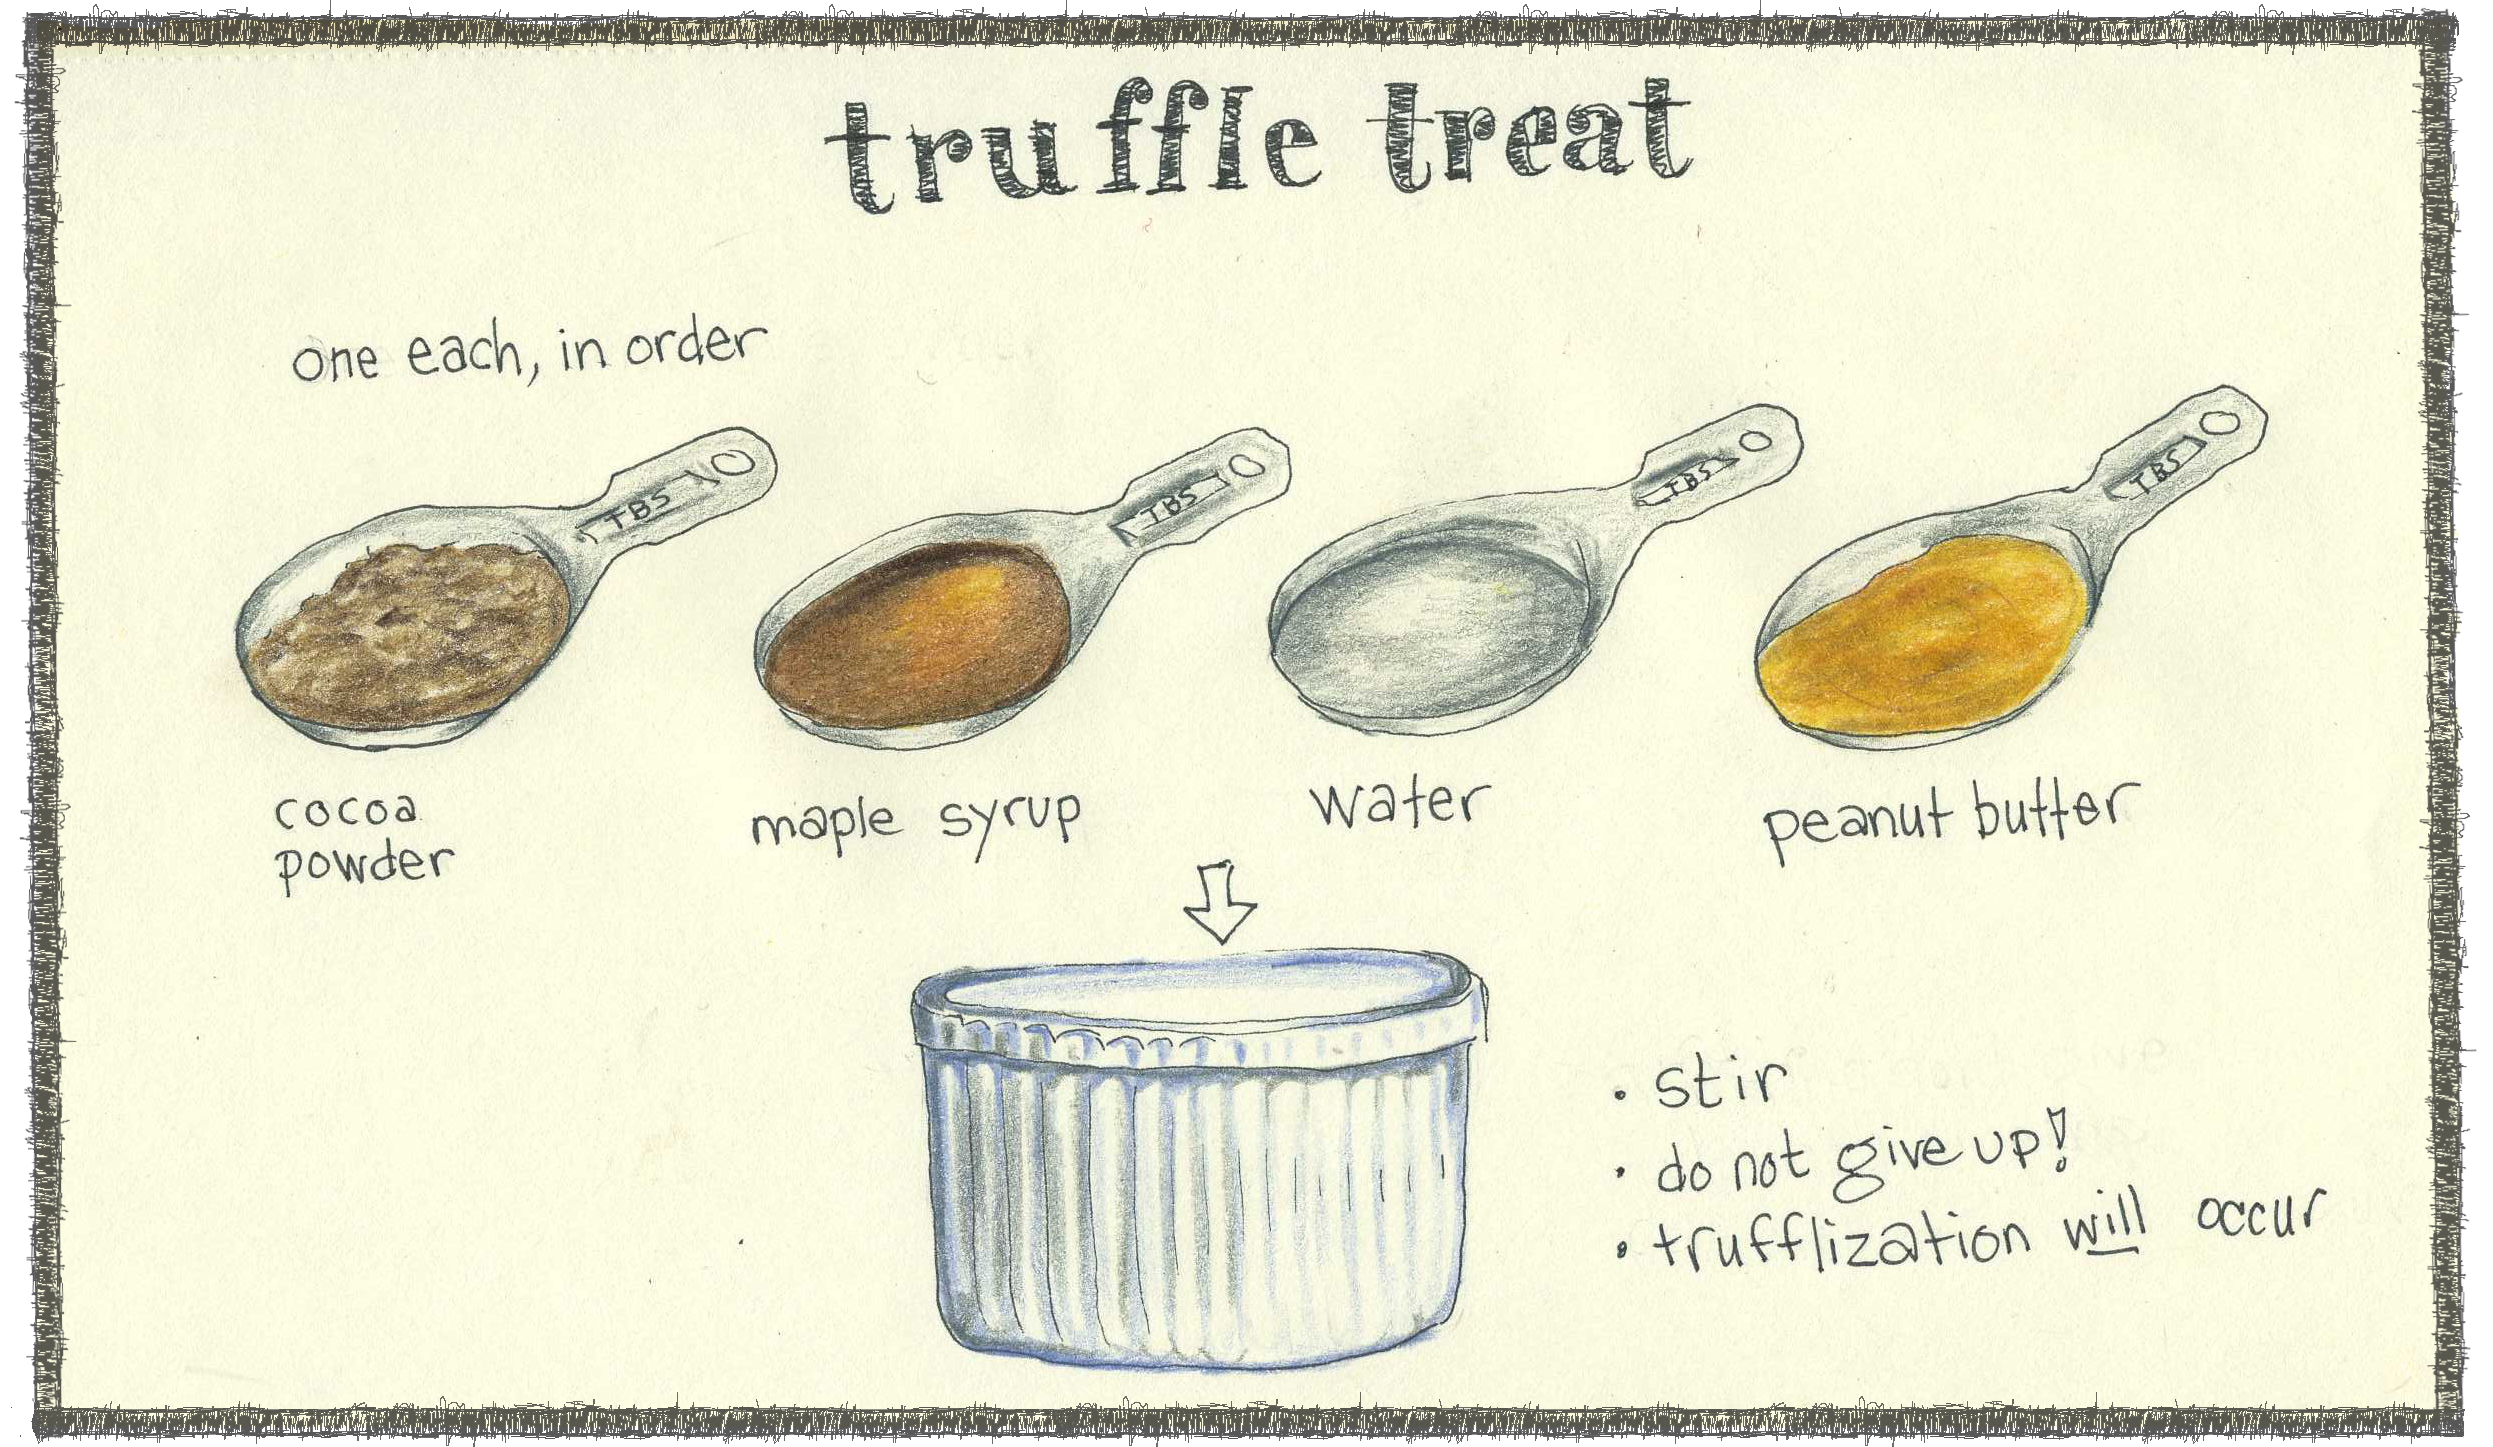 truffle treat
one each, in order
TBS
TBS
TBS
TBS
cocoa
powder
maple syrup
water
peanut butter
• stir
• do not give up!
• trufflization will occur